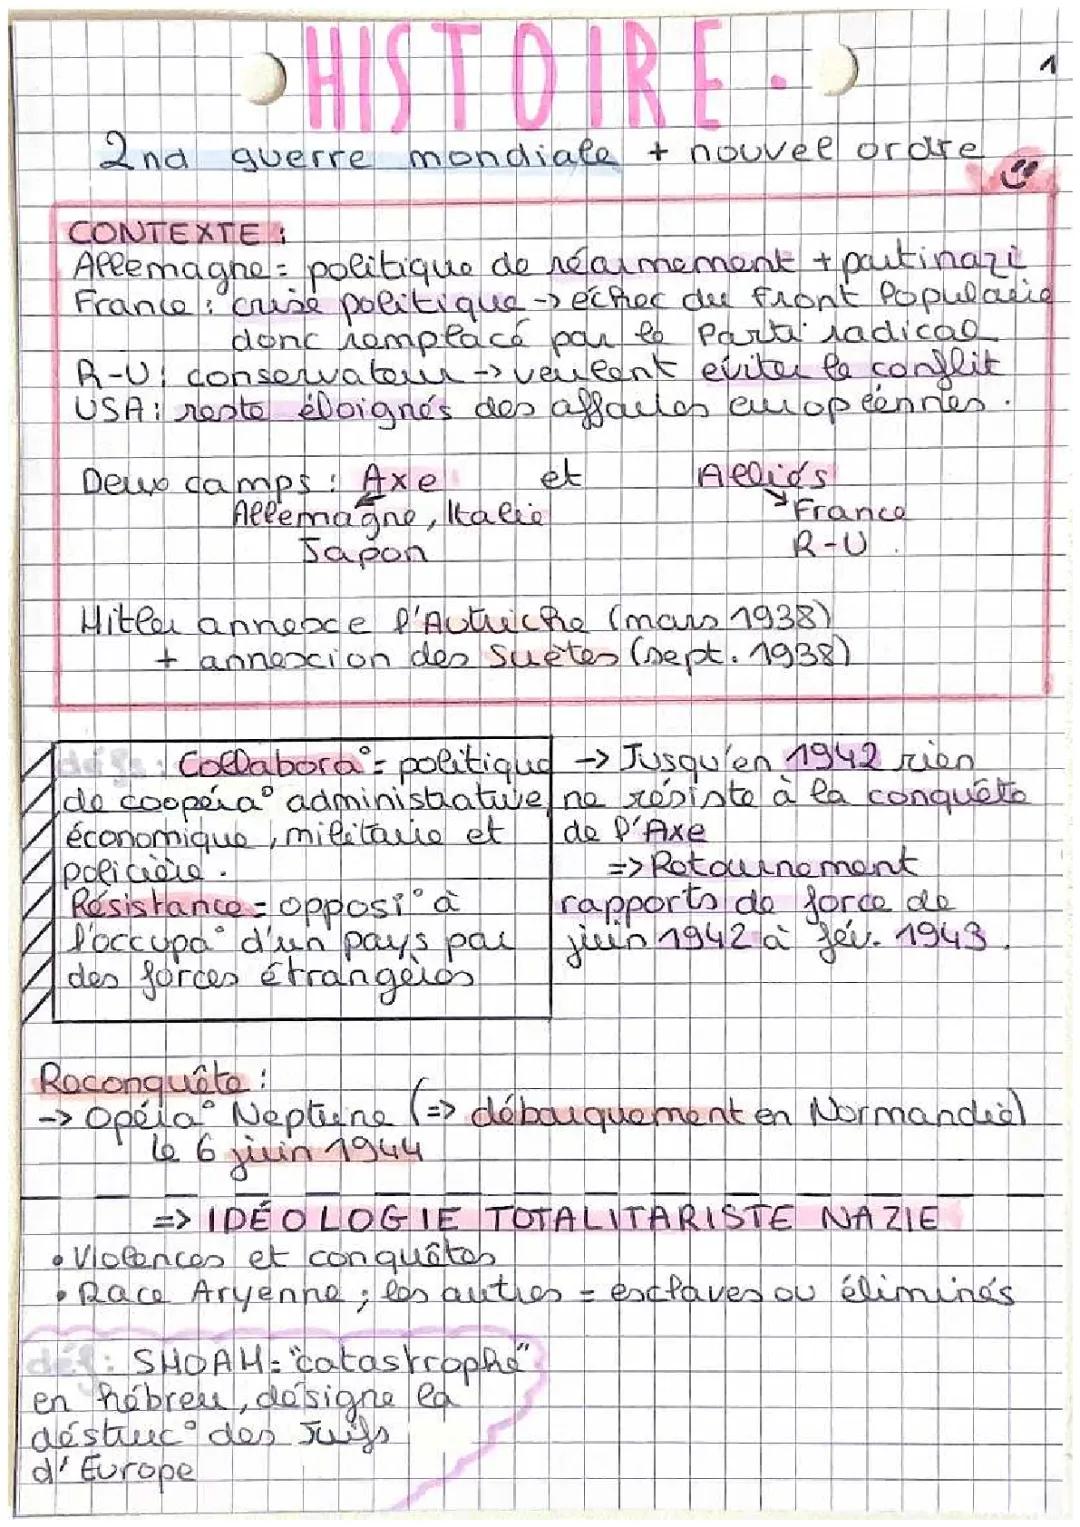 HISTOIRE.
1
2nd guerre mondiale + nouvel ordre
CONTEXTE :
Allemagne = politique de réarmement + parti nazi
France : crise politique -> échec du Front Populaire
donc remplacé par le Parti radical
R-U : conservateur -> veulent éviter le conflit
USA : reste éloignés des affaires européennes.
Deux camps : Axe et Alliés
Allemagne, Italie
France
Japon
R-U.
Hitler annexe l'Autriche (mars 1938)
+ annexion des Suètes (sept. 1938)
défs : Collabora° = politique
de coopéra° administrative,
économique, militaire et
policière.
Résistance = opposi° à
l'occupa° d'un pays par
des forces étrangères
-> Jusqu'en 1942 rien
ne résiste à la conquête
de l'Axe
=> Retournement
rapports de force de
juin 1942 à fév. 1943.
Reconquête :
-> Opéra° Neptune (=> débarquement en Normandie)
le 6 juin 1944
=> IDÉOLOGIE TOTALITARISTE NAZIE
• Violences et conquêtes
• Race Aryenne ; les autres = esclaves ou éliminés
déf : SHOAH = "catastrophe"
en hébreu, désigne la
déstruc° des Juifs
d'Europe